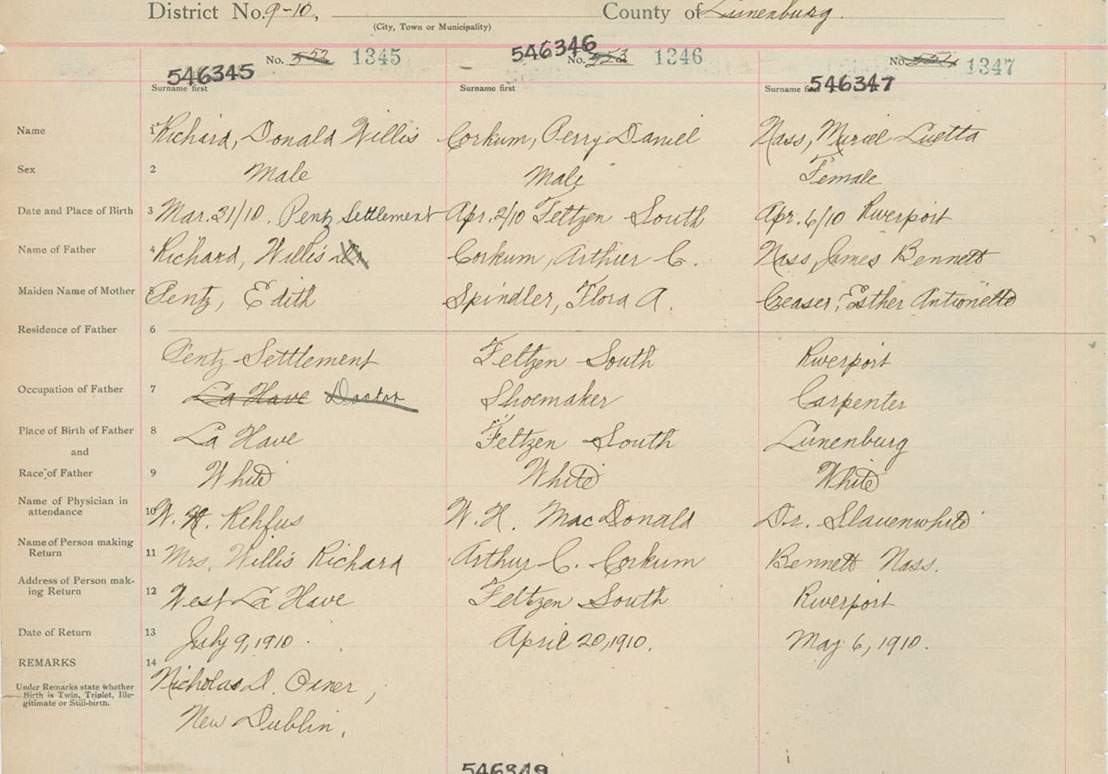 District No. 9-10, County of Lunenburg.
(City, Town or Municipality)
546345 No. 552 1345 546346 No. 553 1346 546347 No. 1347
Surname first Surname first Surname first
Name 1 Richard, Donald Willis Corkum, Perry Daniel Nass, Muriel Luetta
Sex 2 Male Male Female
Date and Place of Birth 3 Mar. 31/10. Pentz Settlement Apr. 2/10 Feltzen South Apr. 6/10 Riverport
Name of Father 4 Richard, Willis Corkum, Arthur C. Nass, James Bennett
Maiden Name of Mother 5 Pentz, Edith Spindler, Flora A. Creaser, Esther Antionette
Residence of Father 6
Pentz Settlement Feltzen South Riverport
Occupation of Father 7 La Have Doctor Shoemaker Carpenter
Place of Birth of Father 8 La Have Feltzen South Lunenburg
and
Race of Father 9 White White White
Name of Physician in
attendance 10 W. H. Rehfus W. H. MacDonald Dr. Slauenwhite
Name of Person making
Return 11 Mrs. Willis Richard Arthur C. Corkum Bennett Nass.
Address of Person mak-
ing Return 12 West La Have Feltzen South Riverport
Date of Return 13 July 9, 1910. April 20, 1910. May 6, 1910.
REMARKS 14
Under Remarks state whether
Birth is Twin, Triplet, Ille-
gitimate or Still-birth.
Nicholas D. Oxner,
New Dublin.
546349